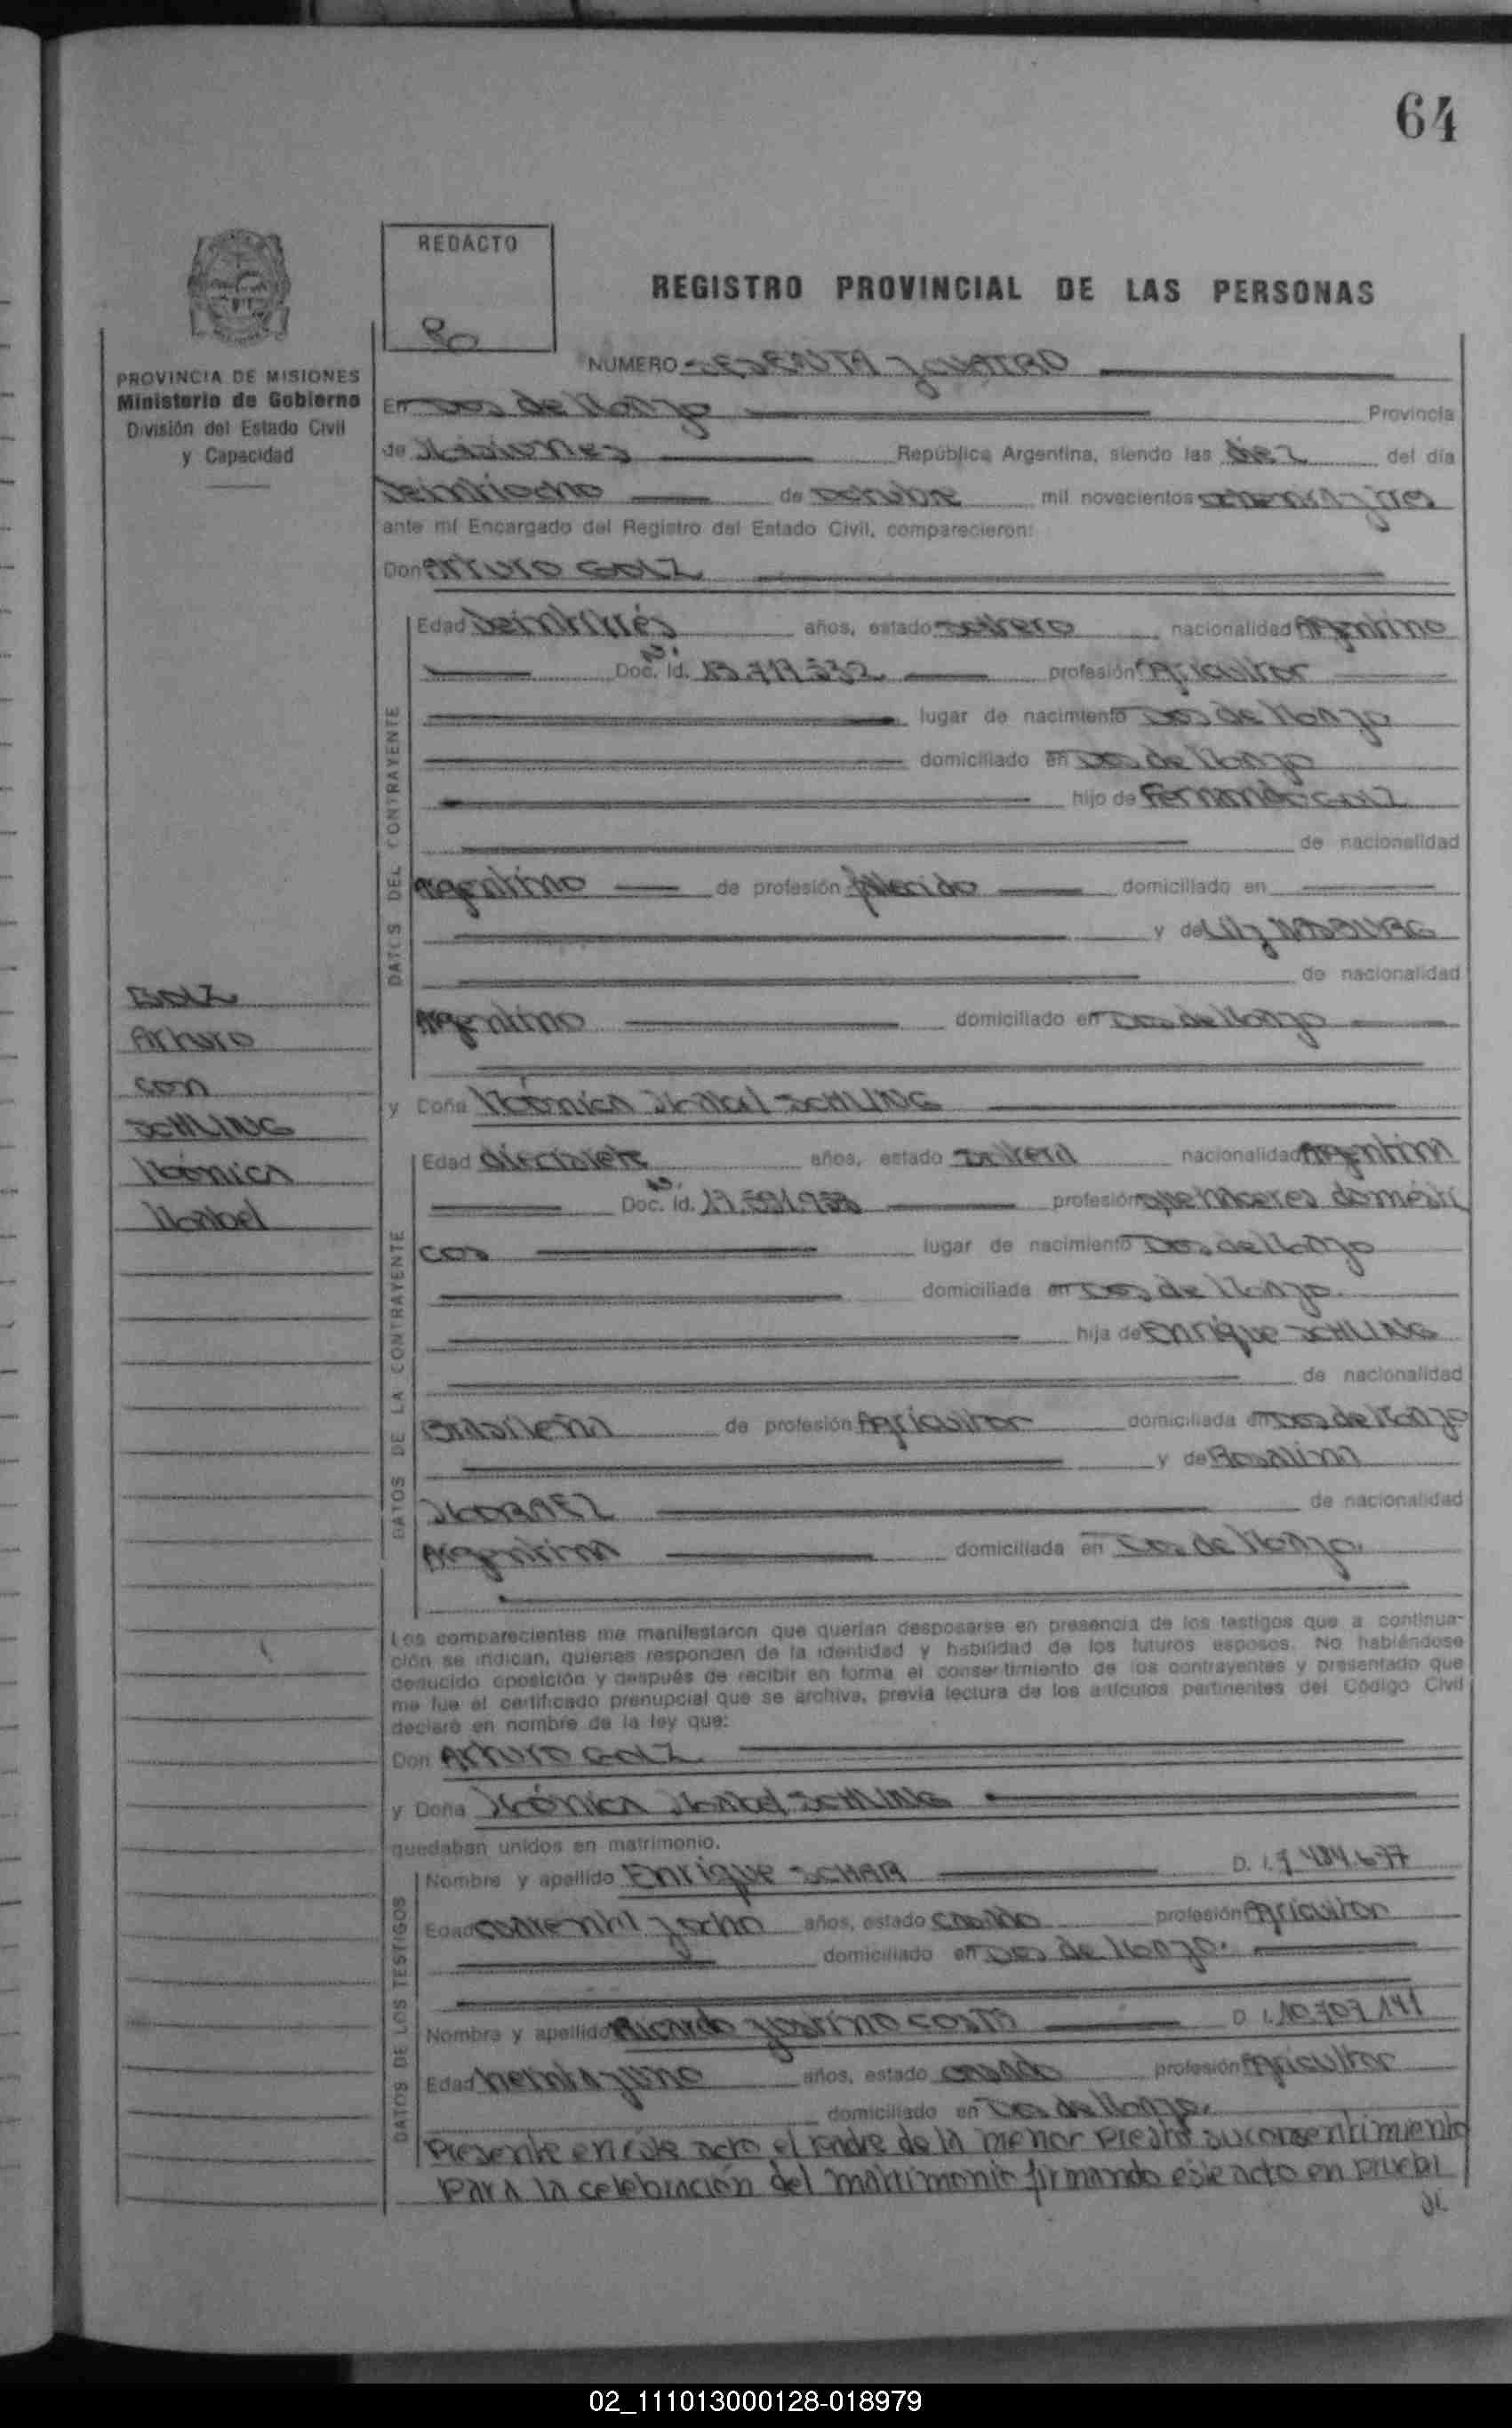 64
REDACTO
REGISTRO PROVINCIAL DE LAS PERSONAS
NUMERO SESENTA y CUATRO
PROVINCIA DE MISIONES
Ministerio de Gobierno
División del Estado Civil
y Capacidad
En Dos de Mayo Provincia
de Misiones República Argentina, siendo las diez del día
veintiocho de octubre mil novecientos ochenta y tres
ante mí Encargado del Registro del Estado Civil, comparecieron:
Don Arturo GOLZ
DATOS DEL CONTRAYENTE
Edad veintitrés años, estado soltero nacionalidad Argentino
Doc. Id. profesión Agricultor
lugar de nacimiento Dos de Mayo
domiciliado en Dos de Mayo
hijo de Fernando GOLZ
de nacionalidad
Argentino de profesión fallecido domiciliado en
y de Lily
de nacionalidad
Argentino domiciliado en Dos de Mayo
GOLZ
Arturo
con
SCHLING
Mónica
Mabel
y Doña Mónica Mabel SCHLING
DATOS DE LA CONTRAYENTE
Edad diecisiete años, estado soltera nacionalidad Argentina
Doc. Id. profesión quehaceres domésti
cos lugar de nacimiento Dos de Mayo
domiciliada en Dos de Mayo.
hija de Enrique SCHLING
de nacionalidad
Brasileña de profesión Agricultor domiciliada en Dos de Mayo
y de Rosalina
de nacionalidad
Argentina domiciliada en Dos de Mayo.
Los comparecientes me manifestaron que querían desposarse en presencia de los testigos que a continua-
ción se indican, quienes responden de la identidad y habilidad de los futuros esposos. No habiéndose
deducido oposición y después de recibir en forma el consertimiento de los contrayentes y presentado que
me fue el certificado prenupcial que se archiva, previa lectura de los artículos pertinentes del Código Civil
declaré en nombre de la ley que:
Don Arturo GOLZ
y Doña Mónica Mabel SCHLING
quedaban unidos en matrimonio.
DATOS DE LOS TESTIGOS
Nombre y apellido Enrique D. I. 7.484.677
Edad cuarenta y ocho años, estado casado profesión Agricultor
domiciliado en Dos de Mayo.
Nombre y apellido Ricardo COSTA D. I. 10.707.141
Edad treinta y uno años, estado casado profesión Agricultor
domiciliado en Dos de Mayo.
Presente en este acto el padre de la menor presta su consentimiento
para la celebración del matrimonio firmando este acto en prueba
02_111013000128-018979